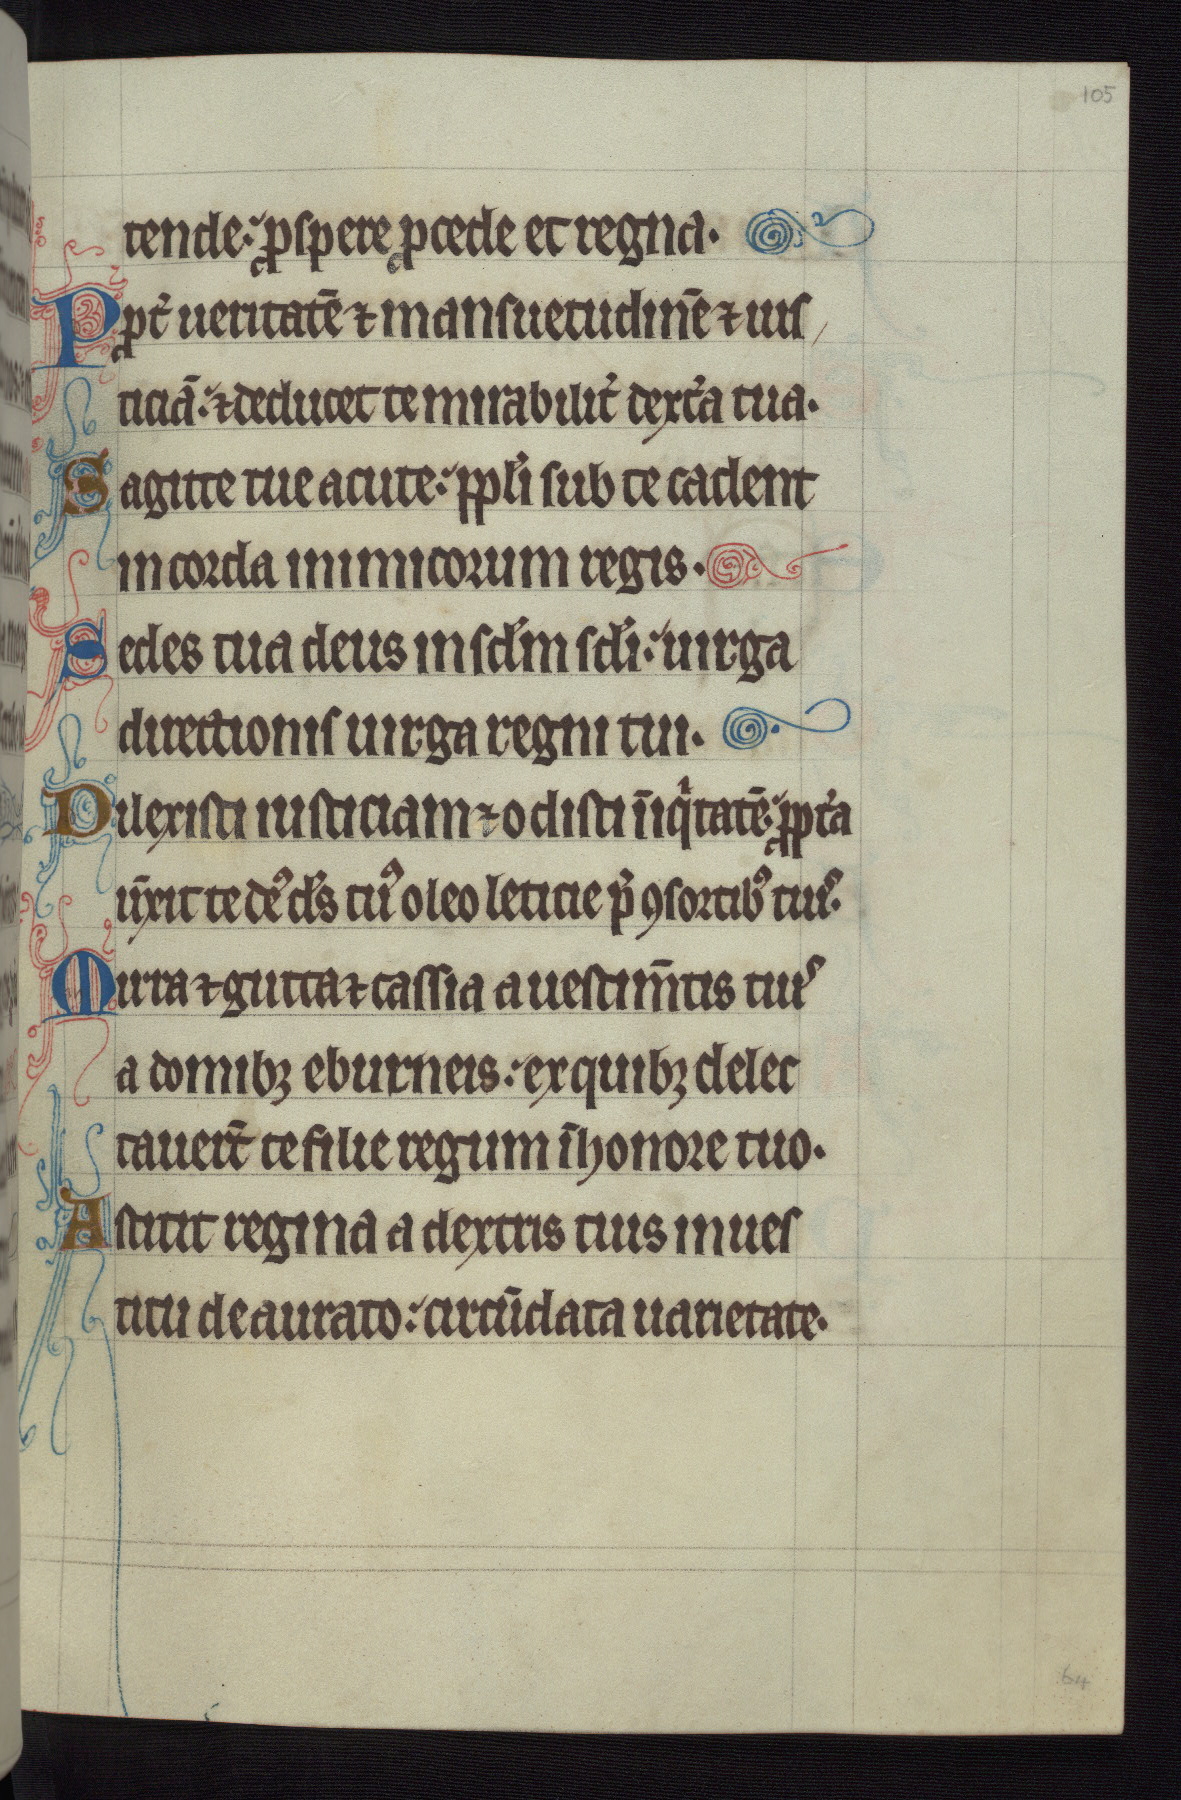 105
tende: ꝓspere ꝓcede et regna.
Pꝓpt̉ ueritatē ⁊ mansuetudinē ⁊ iuſ
ticiā: ⁊ deducet te mirabilit̉ dext̉a tua.
Sagitte tue acute: ppl̉i sub te cadent
in corda inimicorum regis.
Sedes tua deus in scl̉m scl̉i: uirga
directionis uirga regni tui.
Dilexisti iusticiam ⁊ odisti īiqͥtatē: ꝓpt̉a
ūxit te deꝰ ds̄ tuꝰ oleo leticie p̄ ꝯsortibꝰ tuis.
Mirra ⁊ gutta ⁊ cassia a uestim̄tis tuis
a domibꝫ eburneis: ex quibꝫ delec
tauer̄t te filie regum ī honore tuo.
Astitit regina a dextris tuis in ueſ
titu deaurato: circūdata uarietate.
64